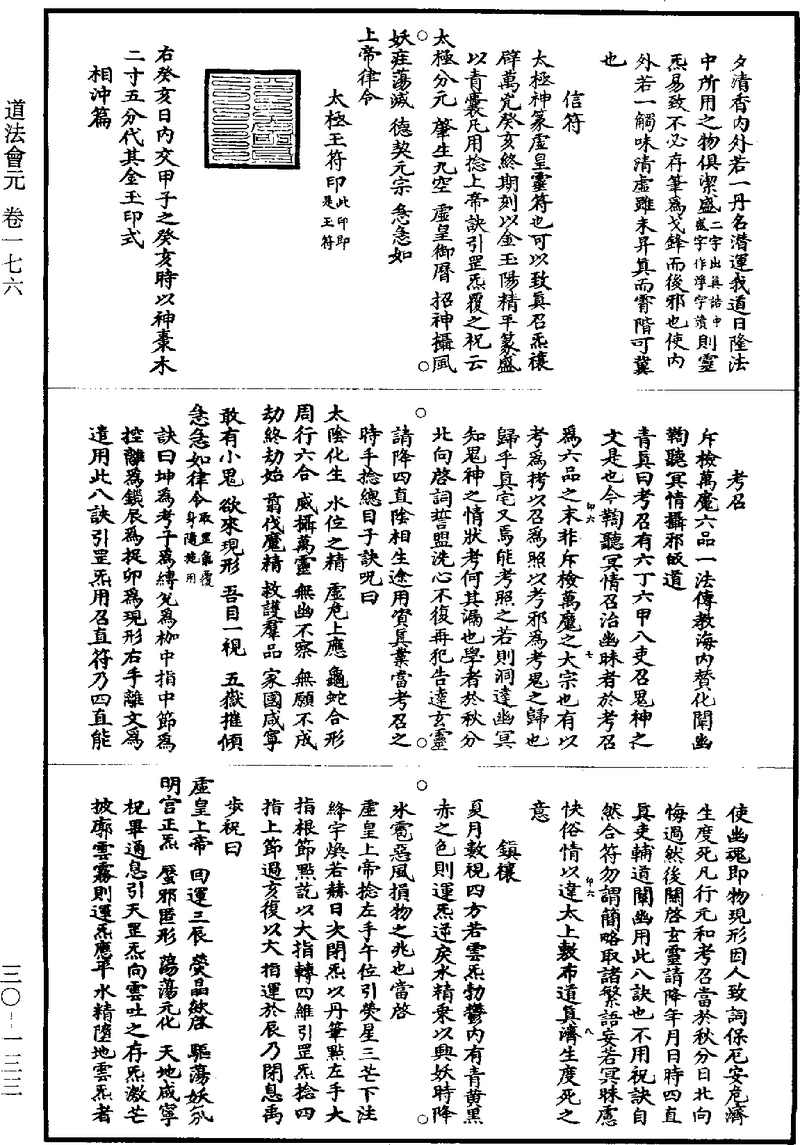 道法會元 卷一七六
三〇-一三三
夕清香內外若一丹名潛運我道日隆法
中所用之物俱潔盛二字出真誥中盛字作淨字讀則靈
炁易致不必存筆為戈鋒而後邪也使內
外若一觸味清虛雖未昇真而霄階可冀
也
信符
太極神篆虛皇靈符也可以致真召炁禳
辟萬兇癸亥終期刻以金玉陽精平篆盛
以青囊凡用捻上帝訣引罡炁覆之祝云
太極分元 肇生九空 虛皇御曆 招神攝風
妖疰蕩滅 德契元宗 急急如
上帝律令
太極玉符印此印即是玉符
右癸亥日內交甲子之癸亥時以神棗木
二寸五分代其金玉印式
相沖篇
考召
斥檢萬魔六品一法傳教海內贊化闡幽
鞫聽冥情攝邪皈道
青真曰考召有六丁六甲八吏召鬼神之
文是也今鞫聽冥情召治幽昧者於考召
為六品之末非斥檢萬魔之大宗也有以
考為拷以召為照以考邪為考鬼之歸也
歸乎真宅又焉能考照之若則洞達幽冥
知鬼神之情狀考何其漏也學者於秋分
北向啓詞誓盟洗心不復再犯告達玄靈
請降四直陰相生途用資真業當考召之
時手捻總目子訣呪曰
太陰化生 水位之精 虛危上應 龜蛇合形
周行六合 威攝萬靈 無幽不察 無願不成
劫終劫始 翦伐魔精 救護羣品 家國咸寧
敢有小鬼 欲來現形 吾目一視 五嶽摧傾
急急如律令取罡炁覆身隨施用
訣曰坤為考子為縛兌為枷中指中節為
控離為鎖辰為捉卯為現形右手離文為
遣用此八訣引罡炁用召直符乃四直能
使幽魂即物現形因人致詞保厄安危濟
生度死凡行元和考召當於秋分日北向
悔過然後關啓玄靈請降年月日時四直
真吏輔道闡幽用此八訣也不用祝訣自
然合符勿謂簡略取諸繁語妄若冥昧慮
快俗情以違太上敷布道真濟生度死之
意
鎮禳
夏月數視四方若雲炁勃鬱內有青黃黑
赤之色則運炁逆戾水精乘以興妖時降
氷雹惡風損物之兆也當啓
虛皇上帝捻左手午位引熒星三芒下注
絳宇煥若赫日次閉炁以丹筆點左手大
指根節點訖以大指轉四維引罡炁捻四
指上節過亥復以大指運於辰乃閉息禹
步祝曰
虛皇上帝 回運三辰 熒晶欻啓 驅蕩妖氛
明宮正炁 壓邪匿形 蕩蕩元化 天地咸寧
祝畢通息引天罡炁向雲吐之存炁激芒
披廓雲霧則運炁應平水精墮地雲炁者